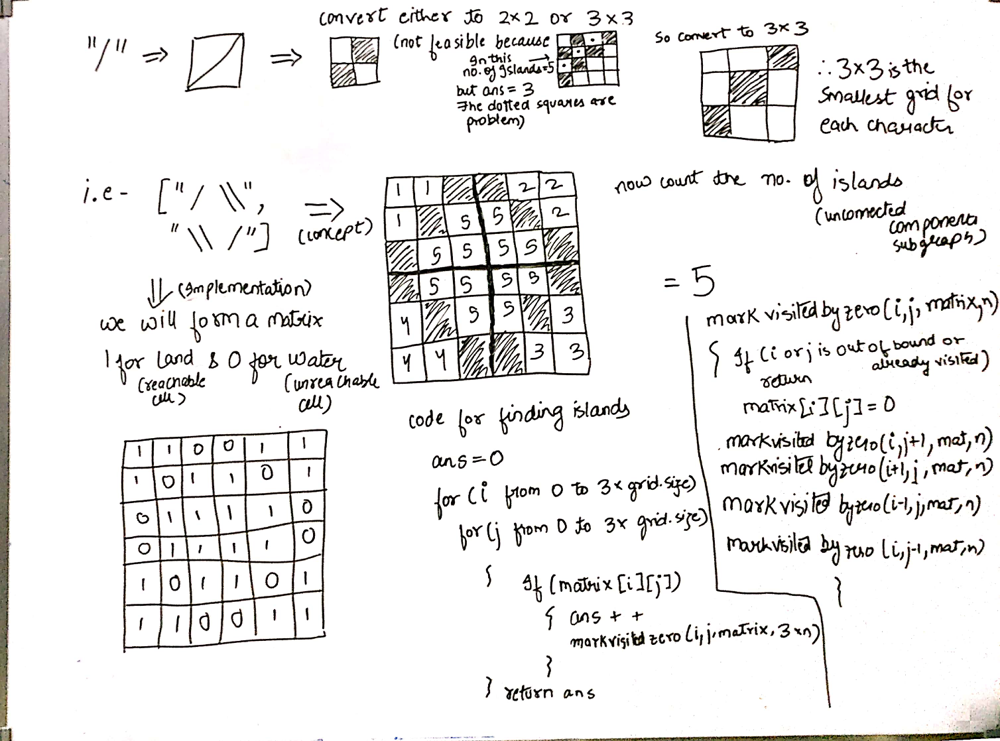 convert either to 2×2 or 3×3
"/" ⇒ ⇒
(not feasible because
In this
no. of Islands=5
but ans = 3
The dotted squares are
problem)
So convert to 3×3
∴ 3×3 is the
smallest grid for
each character
i.e- ["/ \\",
"\\ /"]
⇒
(concept)
1 1 2 2
1 5 5 2
5 5 5 5
5 5 5 5
4 5 5 3
4 4 3 3
now count the no. of islands
(unconnected
components
subgraph)
= 5
⇓ (Implementation)
we will form a matrix
1 for land & 0 for water
(reachable
cell)
(unreachable
cell)
1 1 0 0 1 1
1 0 1 1 0 1
0 1 1 1 1 0
0 1 1 1 1 0
1 0 1 1 0 1
1 1 0 0 1 1
code for finding islands
ans=0
for (i from 0 to 3× grid.size)
for (j from 0 to 3× grid.size)
{ If (matrix[i][j])
{ ans + +
markvisited zero (i, j, matrix, 3×n)
}
} return ans
mark visited by zero (i, j, matrix, n)
{ If (i or j is out of bound or
already visited)
return
matrix[i][j] = 0
markvisited by zero (i, j+1, mat, n)
markvisited by zero (i+1, j, mat, n)
markvisited by zero (i-1, j, mat, n)
markvisited by zero (i, j-1, mat, n)
}